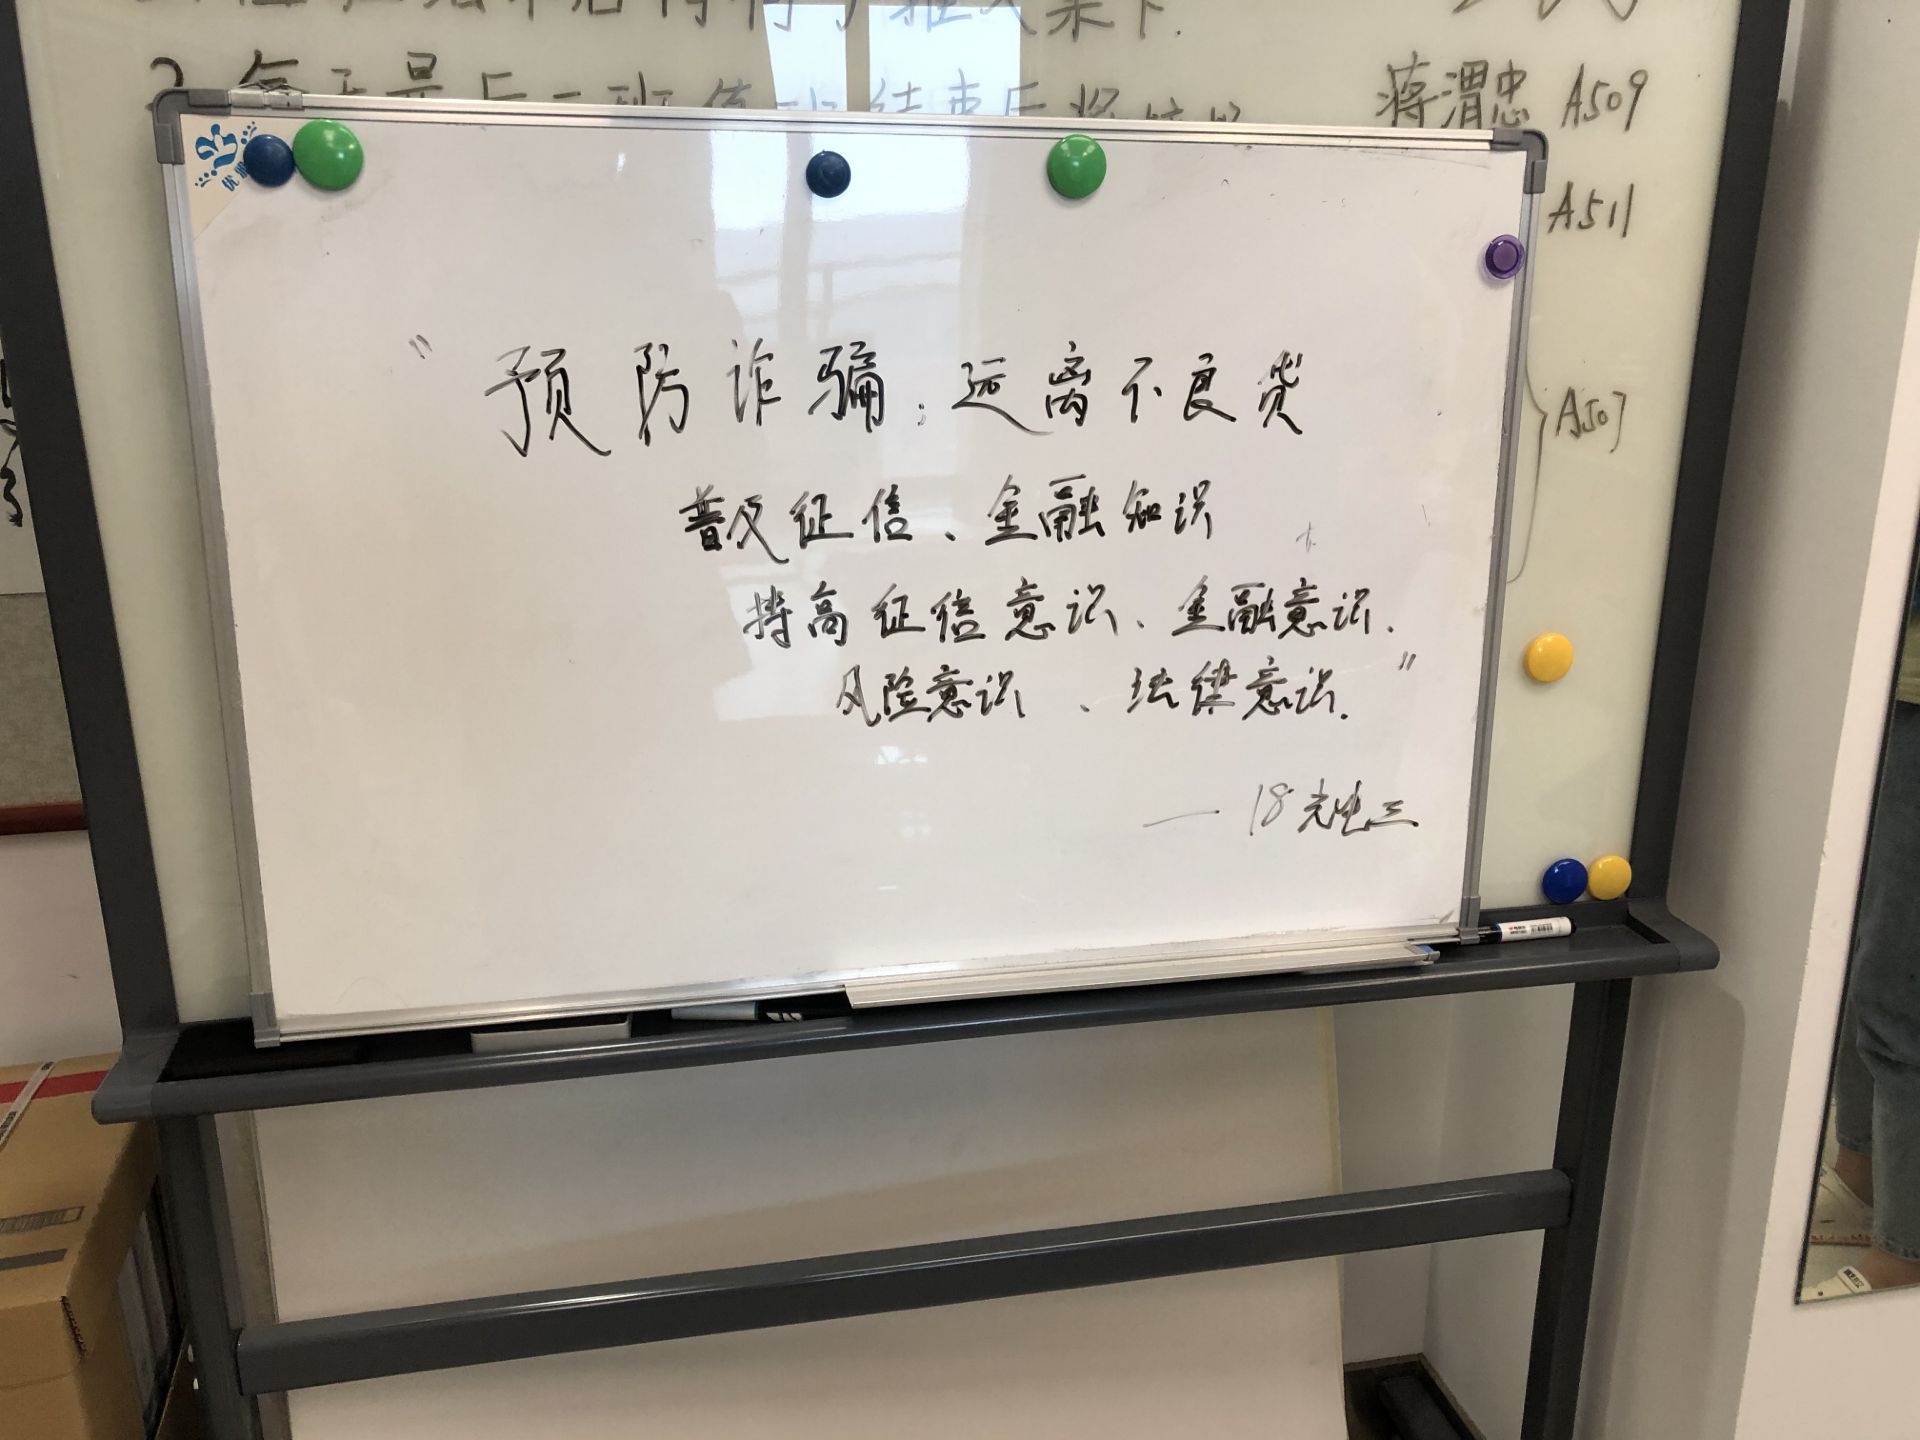 蒋渭忠 A509
A511
A507
"预防诈骗,远离不良贷
普及征信、金融知识
持高征信意识、金融意识.
风险意识、法律意识."
— 18光电三